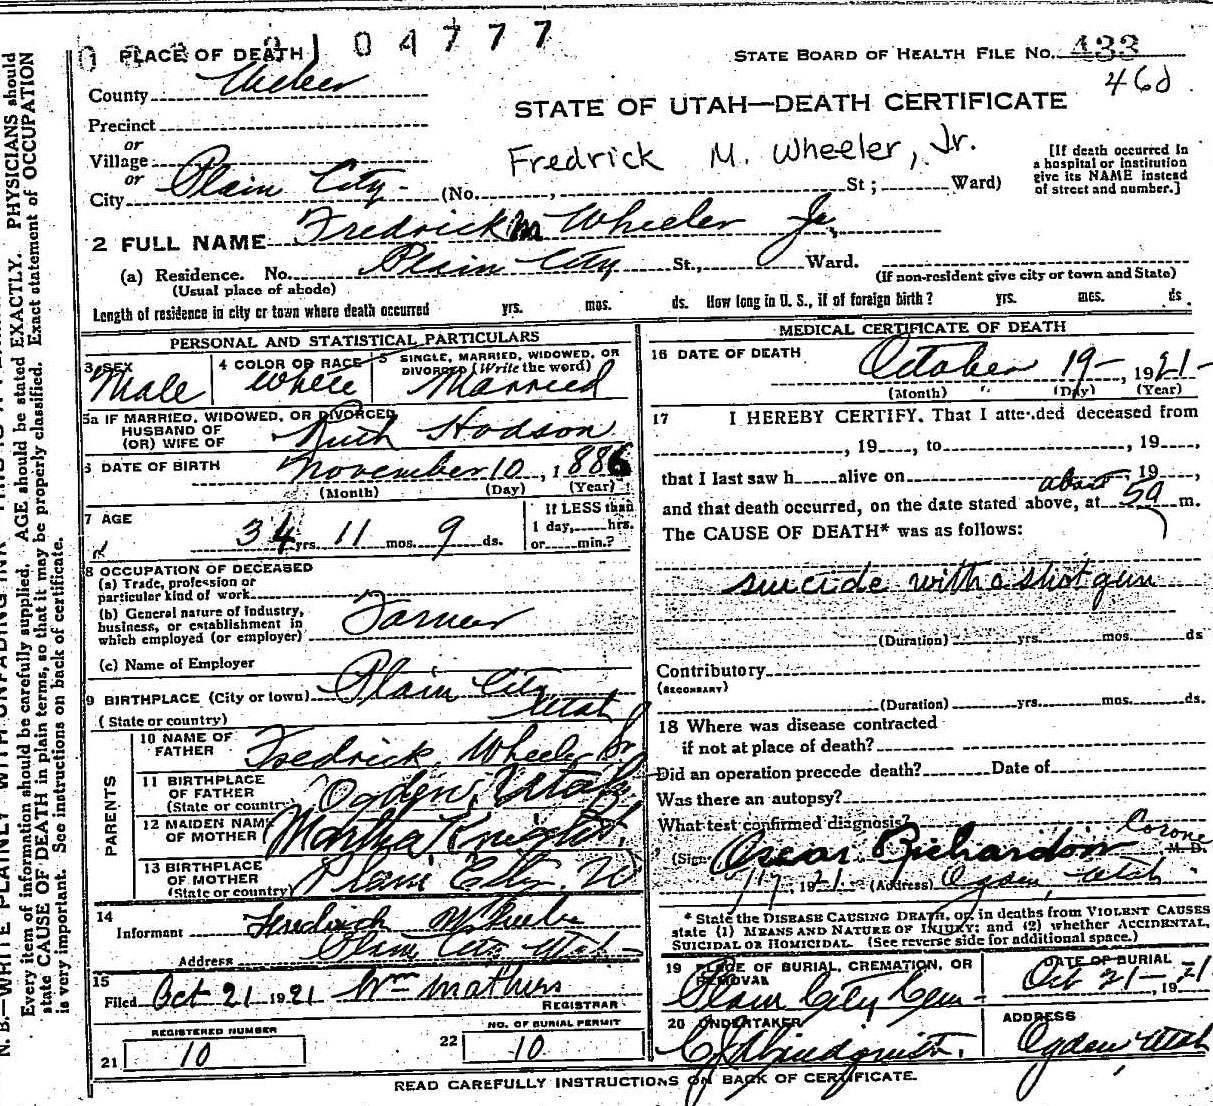 04777
PLACE OF DEATH
STATE BOARD OF HEALTH FILE No. 433
County Weber
468
STATE OF UTAH—DEATH CERTIFICATE
Precinct
or
Village
Fredrick M. Wheeler, Jr.
[If death occurred in
a hospital or institution
give its NAME instead
of street and number.]
or
City Plain City (No. , St; Ward)
2 FULL NAME Fredrick M Wheeler Jr.
(a) Residence. No. Plain City St., Ward.
(Usual place of abode)
(If non-resident give city or town and State)
Length of residence in city or town where death occurred yrs. mos. ds. How long in U. S., if of foreign birth? yrs. mos. ds
PERSONAL AND STATISTICAL PARTICULARS
3 SEX
Male
4 COLOR OR RACE
White
5 SINGLE, MARRIED, WIDOWED, OR
DIVORCED (Write the word)
Married
5a IF MARRIED, WIDOWED, OR DIVORCED
HUSBAND OF
(OR) WIFE OF
Ruth Hodson
6 DATE OF BIRTH November 10, 1886
(Month) (Day) (Year)
7 AGE
34 yrs. 11 mos. 9 ds.
If LESS than
1 day, hrs.
or min.?
8 OCCUPATION OF DECEASED
(a) Trade, profession or
particular kind of work
(b) General nature of industry,
business, or establishment in
which employed (or employer)
Farmer
(c) Name of Employer
9 BIRTHPLACE (City or town) Plain City
(State or country) Utah
PARENTS
10 NAME OF
FATHER Fredrick Wheeler Sr
11 BIRTHPLACE
OF FATHER
(State or country) Ogden, Utah
12 MAIDEN NAME
OF MOTHER Martha Knight
13 BIRTHPLACE
OF MOTHER
(State or country) Plain City, U
14
Informant Fredrick Wheeler
Address Plain City Utah
15
Filed Oct 21 1921 Wm Mathers
REGISTRAR
REGISTERED NUMBER
21 10
NO. OF BURIAL PERMIT
22 10
MEDICAL CERTIFICATE OF DEATH
16 DATE OF DEATH
October 19-, 1921-
(Month) (Day) (Year)
17 I HEREBY CERTIFY, That I attended deceased from
, 19 , to , 19 ,
that I last saw h alive on , 19 ,
about
and that death occurred, on the date stated above, at 5 a m.
The CAUSE OF DEATH* was as follows:
suicide with a shot gun
(Duration) yrs. mos. ds
Contributory
(SECONDARY)
(Duration) yrs. mos. ds.
18 Where was disease contracted
if not at place of death?
Did an operation precede death? Date of
Was there an autopsy?
What test confirmed diagnosis?
Coroner
(Sign Oscar Richardson M. D.
, 1921 (Address) Ogden, Utah
* State the DISEASE CAUSING DEATH, or, in deaths from VIOLENT CAUSES
state (1) MEANS AND NATURE OF INJURY; and (2) whether ACCIDENTAL,
SUICIDAL OR HOMICIDAL. (See reverse side for additional space.)
19 PLACE OF BURIAL, CREMATION, OR
REMOVAL
Plain City Cem
DATE OF BURIAL
Oct 21-, 1921
20 UNDERTAKER
Lindquist.
ADDRESS
Ogden, Utah
READ CAREFULLY INSTRUCTIONS ON BACK OF CERTIFICATE.
N. B.—WRITE PLAINLY WITH UNFADING INK
Every item of information should be carefully supplied. AGE should be stated EXACTLY. PHYSICIANS should
state CAUSE OF DEATH in plain terms, so that it may be properly classified. Exact statement of OCCUPATION
is very important. See instructions on back of certificate.